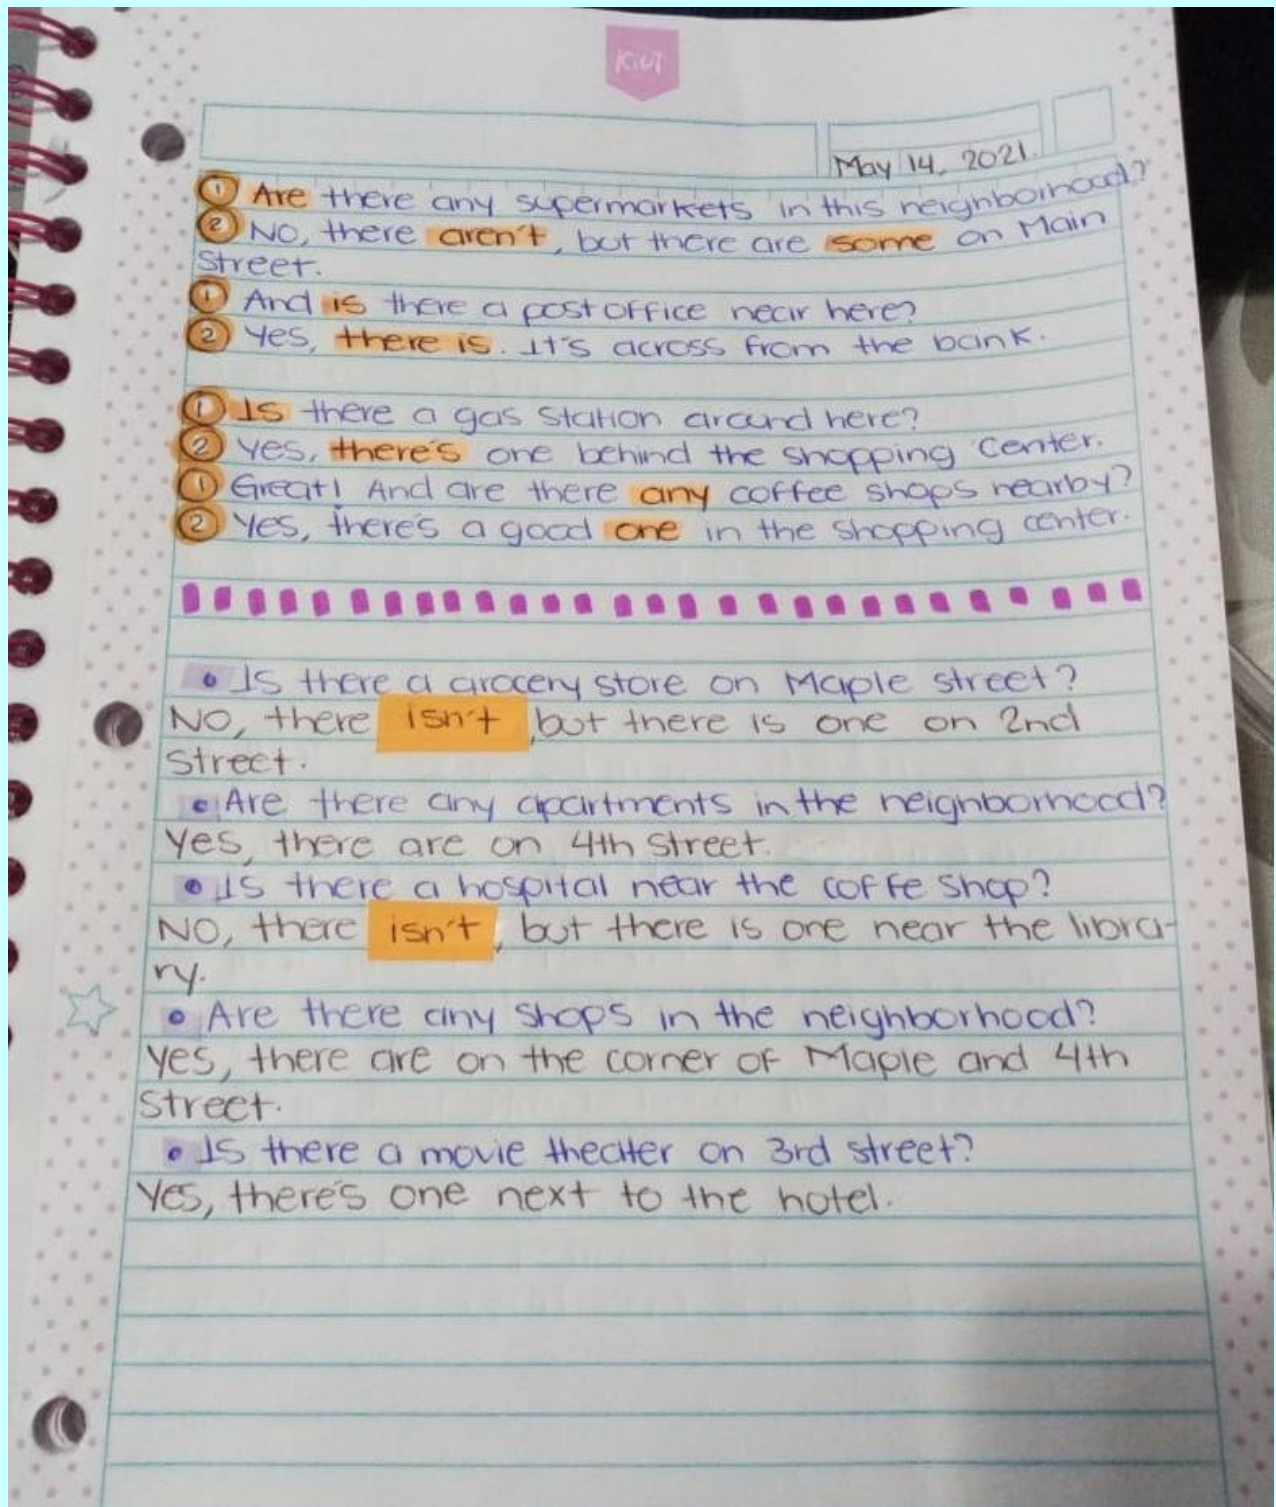 KiUT
May 14, 2021.
① Are there any supermarkets in this neighborhood?
② No, there aren't, but there are some on Main
Street.
① And is there a post office near here?
② Yes, there is. It's across from the bank.
① Is there a gas station around here?
② Yes, there's one behind the shopping center.
① Great! And are there any coffee shops nearby?
② Yes, there's a good one in the shopping center.
• Is there a grocery store on Maple street?
No, there isn't, but there is one on 2nd
Street.
• Are there any apartments in the neighborhood?
Yes, there are on 4th Street.
• Is there a hospital near the coffe shop?
No, there isn't, but there is one near the libra-
ry.
• Are there any shops in the neighborhood?
Yes, there are on the corner of Maple and 4th
Street.
• Is there a movie theater on 3rd street?
Yes, there's one next to the hotel.